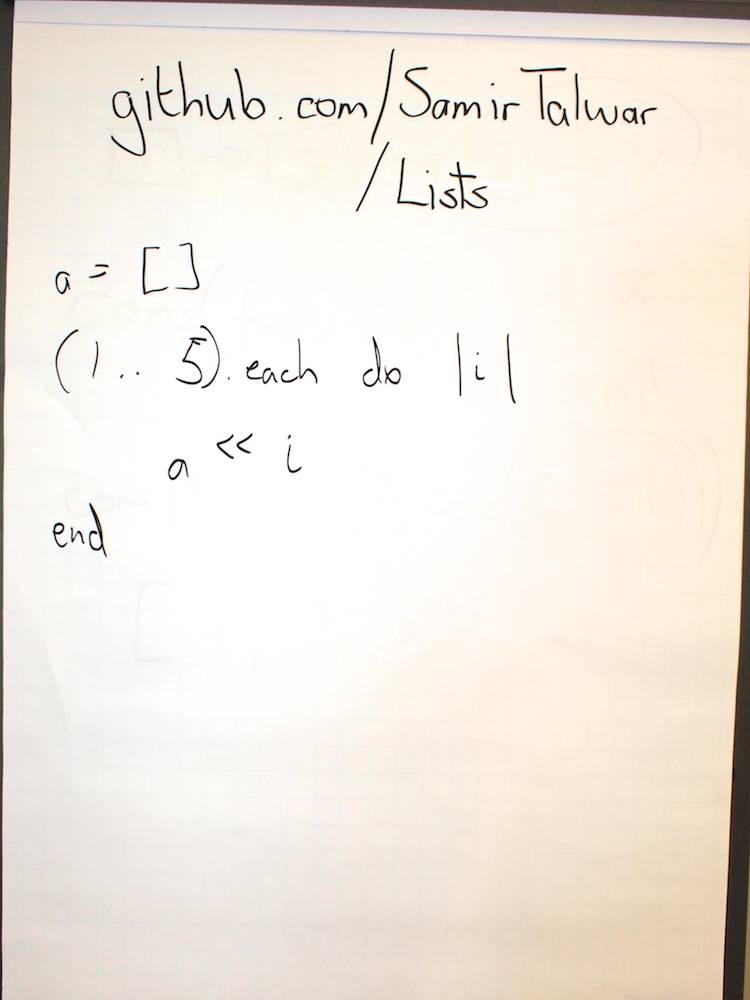 github.com/SamirTalwar
/Lists
a = []
(1.. 5).each do |i|
a << i
end